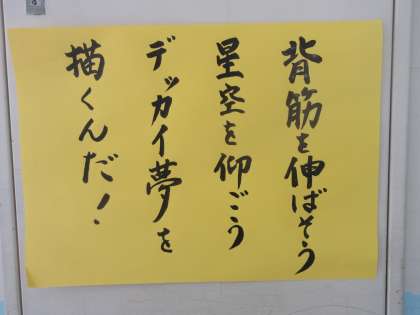 背筋を伸ばそう
星空を仰ごう
デッカイ夢を
描くんだ！